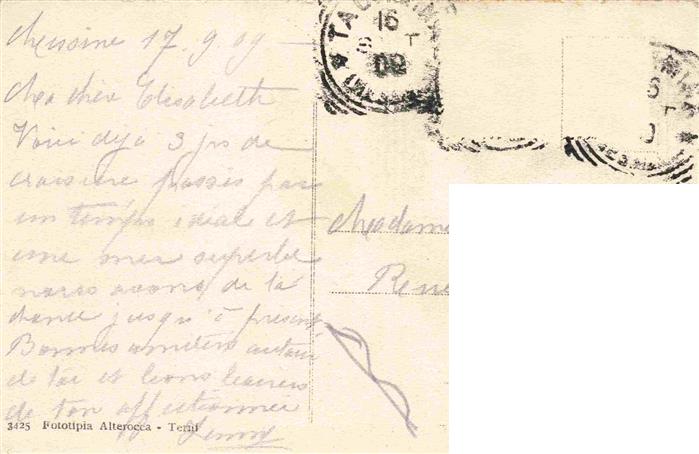 Messine 17.9.09
Ma chère Elisabeth
Voici déjà 3 jrs de
croisière passés par
un temps idéal et
une mer superbe
nous avons de la
chance jusqu'à présent
Bonnes amitiés autour
de toi et bons baisers
de ton affectionnée
Jenny
3425 Fototipia Alterocca - Terni
TAORMINA
16
09
Madame
Rene